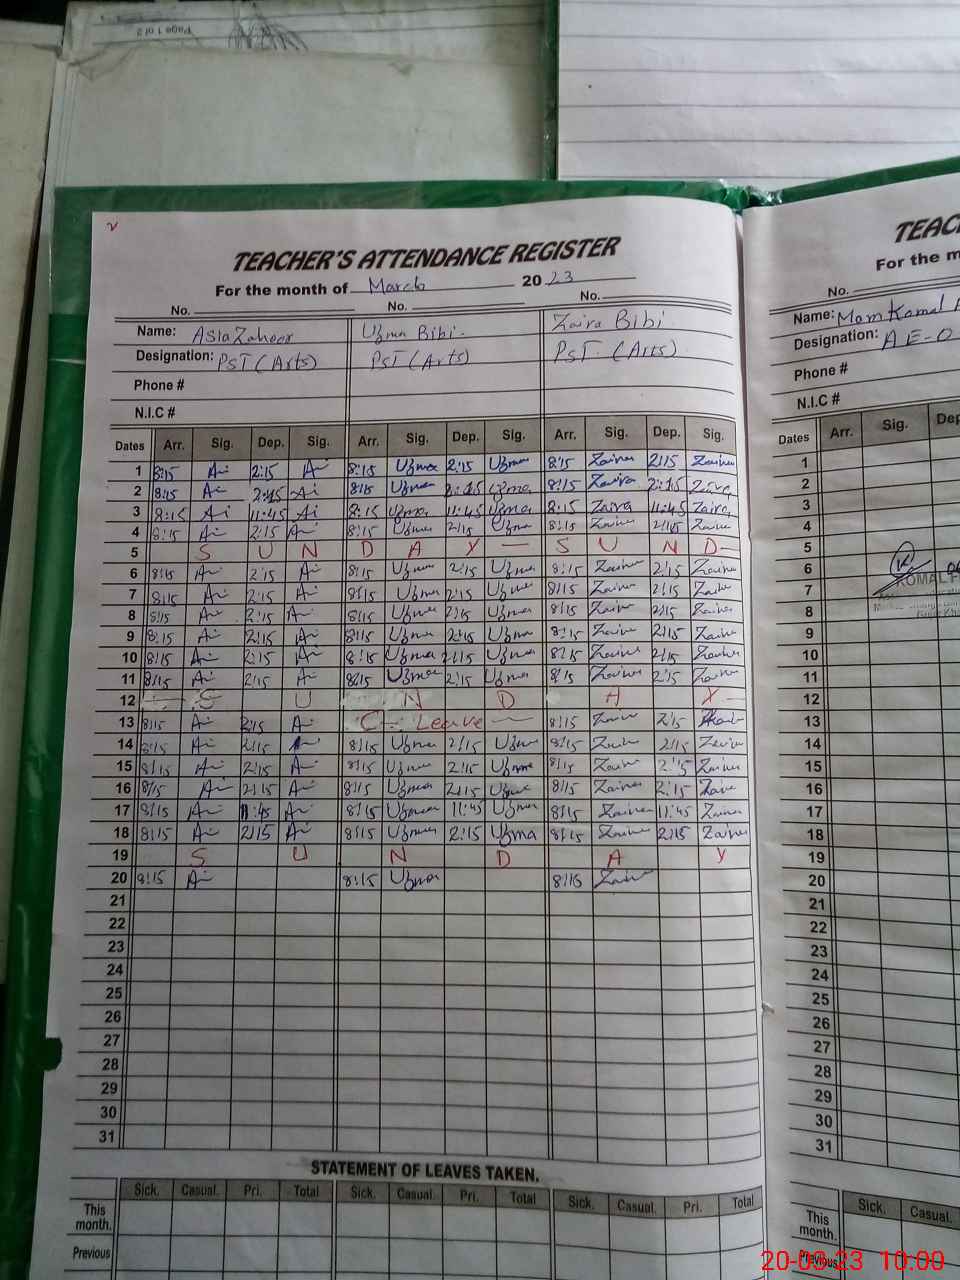 Page 1 of 2
TEACHER'S ATTENDANCE REGISTER
For the month of March 2023
No. No. No.
Name: Asia Zahoor Uzma Bibi. Zaira Bibi
Designation: PST (Arts) PST (Arts) PST. (Arts)
Phone #
N.I.C #
Dates Arr. Sig. Dep. Sig. Arr. Sig. Dep. Sig. Arr. Sig. Dep. Sig.
1 8:15 Ai 2:15 Ai 8:15 Uzma 2:15 Uzma 8:15 Zaira 2:15 Zaira
2 8:15 Ai 2:15 Ai 8:15 Uzma 2:15 Uzma 8:15 Zaira 2:15 Zaira
3 8:15 Ai 11:45 Ai 8:15 Uzma 11:45 Uzma 8:15 Zaira 11:45 Zaira
4 8:15 Ai 2:15 Ai 8:15 Uzma 2:15 Uzma 8:15 Zaira 2:15 Zaira
5 S U N D A Y — S U N D —
6 8:15 Ai 2:15 Ai 8:15 Uzma 2:15 Uzma 8:15 Zaira 2:15 Zaira
7 8:15 Ai 2:15 Ai 8:15 Uzma 2:15 Uzma 8:15 Zaira 2:15 Zaira
8 8:15 Ai 2:15 Ai 8:15 Uzma 2:15 Uzma 8:15 Zaira 2:15 Zaira
9 8:15 Ai 2:15 Ai 8:15 Uzma 2:15 Uzma 8:15 Zaira 2:15 Zaira
10 8:15 Ai 2:15 Ai 8:15 Uzma 2:15 Uzma 8:15 Zaira 2:15 Zaira
11 8:15 Ai 2:15 Ai 8:15 Uzma 2:15 Uzma 8:15 Zaira 2:15 Zaira
12 S U N D A Y
13 8:15 Ai 2:15 Ai C — Leave — 8:15 Zaira 2:15
14 8:15 Ai 2:15 8:15 Uzma 2:15 Uzma 8:15 Zaira 2:15 Zaira
15 8:15 Ai 2:15 Ai 8:15 Uzma 2:15 Uzma 8:15 Zaira 2:15 Zaira
16 8:15 Ai 2:15 Ai 8:15 Uzma 2:15 Uzma 8:15 Zaira 2:15 Zaira
17 8:15 Ai 11:45 Ai 8:15 Uzma 11:45 Uzma 8:15 Zaira 11:45 Zaira
18 8:15 Ai 2:15 Ai 8:15 Uzma 2:15 Uzma 8:15 Zaira 2:15 Zaira
19 S U N D A Y
20 8:15 Ai 8:15 Uzma 8:15 Zaira
21
22
23
24
25
26
27
28
29
30
31
STATEMENT OF LEAVES TAKEN.
Sick. Casual. Pri. Total Sick. Casual. Pri. Total Sick. Casual. Pri. Total
This month.
Previous
TEAC
For the m
No.
Name: Mam Komal
Designation: A E-O
Phone #
N.I.C #
Dates Arr. Sig. Dep
1
2
3
4
5
6
7 KOMAL
8
9
10
11
12
13
14
15
16
17
18
19
20
21
22
23
24
25
26
27
28
29
30
31
Sick. Casual.
This month.
Previous
20-03-23 10:00